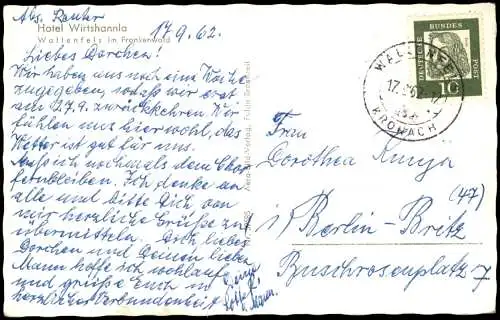 Abs. Reuter
Hotel Wirtshannla
Wallenfels im Frankenwald
17.9.62.
Liebes Dorchen!
Wir haben uns noch eine Woche
zugegeben, sodaß wir erst
am 27.9. zurückkehren. Wir
fühlen uns hier wohl, das
Wetter ist gut für uns.
Muß ich nochmals dem Chor
fernbleiben. Ich denke an
alle und bitte Dich von
mir herzliche Grüße zu
übermitteln. Dich, liebes
Dorchen und Deinen lieben
Mann hoffe ich wohlauf
und grüße Euch in
herzlicher Verbundenheit
Deine
Lotte
u. Mann.
DEUTSCHE BUNDESPOST
10
WALLENFELS
17.9.62
KRONACH
Frau
Dorothea Kunja
(47)
1 Berlin-Britz
Buschrosenplatz 7